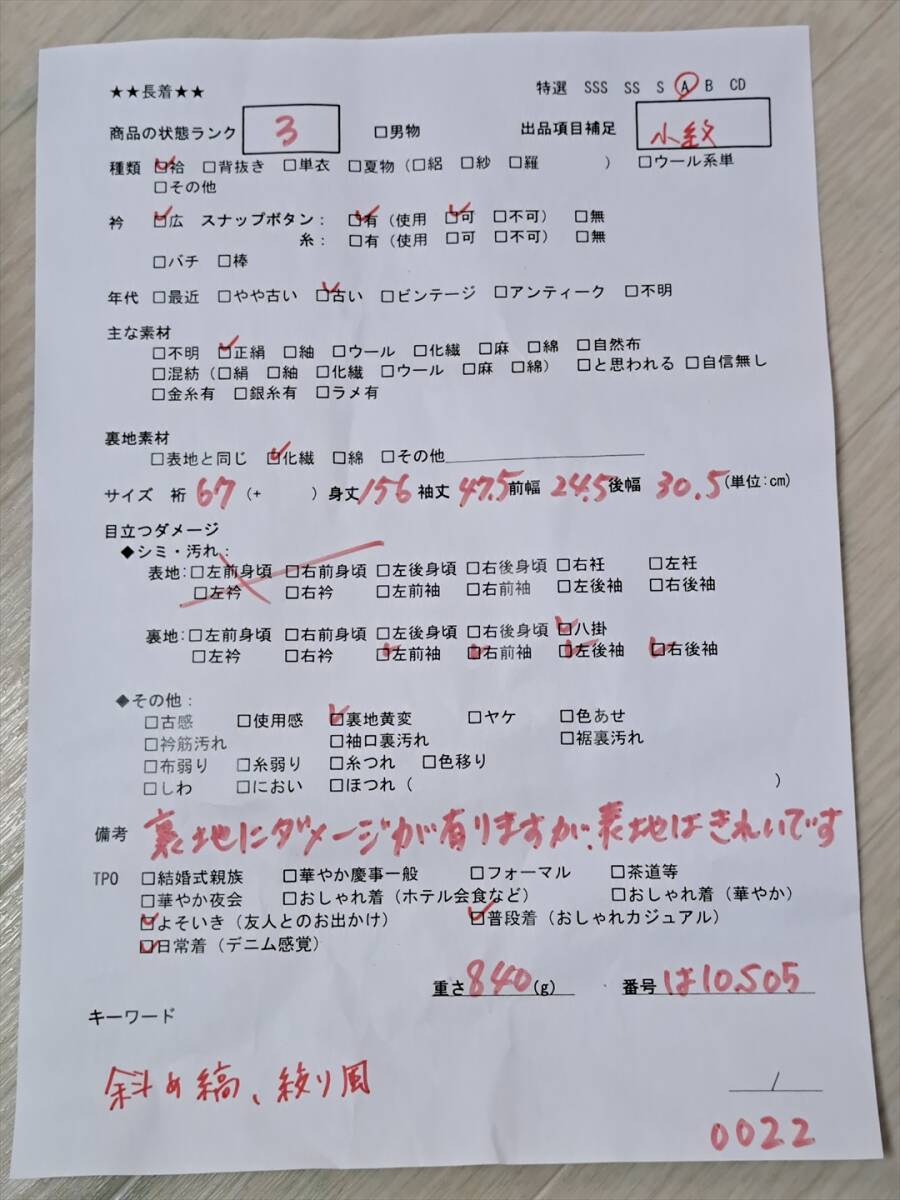 ★★長着★★ 特選 SSS SS S A B CD
商品の状態ランク 3 □男物 出品項目補足 小紋
種類 ☑袷 □背抜き □単衣 □夏物（□絽 □紗 □羅 ） □ウール系単
□その他
衿 ☑広 スナップボタン： ☑有（使用 ☑可 □不可） □無
糸：□有（使用 □可 □不可） □無
□バチ □棒
年代 □最近 □やや古い ☑古い □ビンテージ □アンティーク □不明
主な素材
□不明 ☑正絹 □紬 □ウール □化繊 □麻 □綿 □自然布
□混紡（□絹 □紬 □化繊 □ウール □麻 □綿） □と思われる □自信無し
□金糸有 □銀糸有 □ラメ有
裏地素材
□表地と同じ ☑化繊 □綿 □その他
サイズ 裄 67 （+ ）身丈 156 袖丈 47.5 前幅 24.5 後幅 30.5 (単位:cm)
目立つダメージ
◆シミ・汚れ：
表地：□左前身頃 □右前身頃 □左後身頃 □右後身頃 □右衽 □左衽
□左衿 □右衿 □左前袖 □右前袖 □左後袖 □右後袖
裏地：□左前身頃 □右前身頃 □左後身頃 □右後身頃 ☑八掛
□左衿 □右衿 ☑左前袖 ☑右前袖 ☑左後袖 ☑右後袖
◆その他：
□古感 □使用感 ☑裏地黄変 □ヤケ □色あせ
□衿筋汚れ □袖口裏汚れ □裾裏汚れ
□布弱り □糸弱り □糸つれ □色移り
□しわ □におい □ほつれ（ ）
備考 裏地にダメージが有りますが、表地はきれいです
TPO □結婚式親族 □華やか慶事一般 □フォーマル □茶道等
□華やか夜会 □おしゃれ着（ホテル会食など） □おしゃれ着（華やか）
☑よそいき（友人とのお出かけ） ☑普段着（おしゃれカジュアル）
☑日常着（デニム感覚）
重さ 840 (g) 番号 は10505
キーワード
斜め縞、絞り風
1
0022